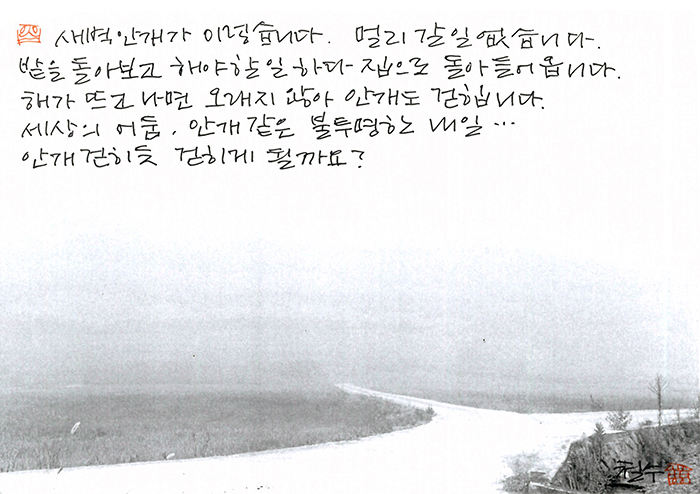 새벽안개가 이렇습니다. 멀리 갈 일 없습니다.
밭을 돌아보고 해야할 일 하다 집으로 돌아 들어옵니다.
해가 뜨고 나면 오래지 않아 안개도 걷힙니다.
세상의 어둠, 안개같은 불투명한 내일 …
안개 걷히듯 걷히게 될까요?
철수